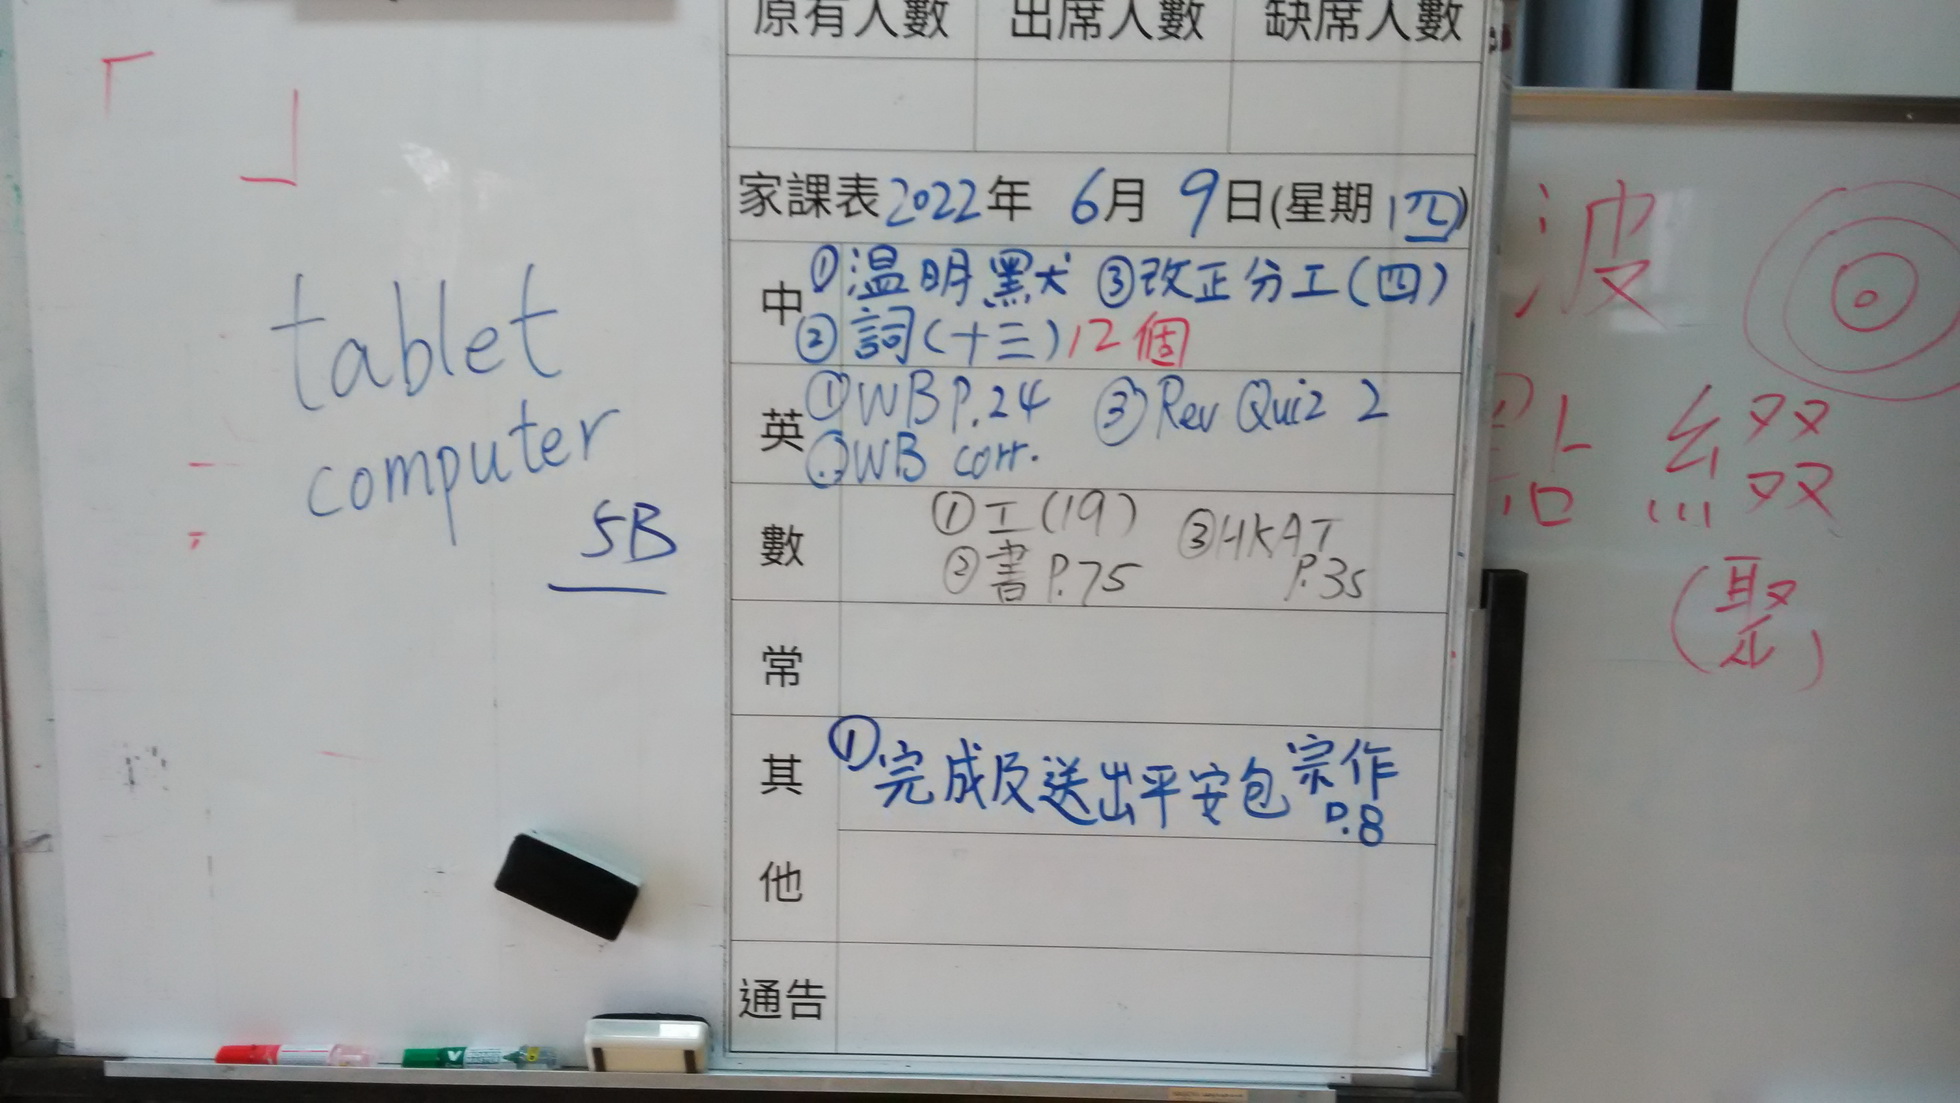 tablet
computer
5B
原有人數 出席人數 缺席人數
家課表2022年 6月 9日(星期四)
中 ①温明黑犬 ③改正分工(四)
②詞(十三)12個
英 ①WB P.24 ③Rev Quiz 2
②WB corr.
數 ①工(19) ③HKAT
②書P.75 P.35
常
其 ①完成及送出平安包 宗作
P.8
他
通告
波
點綴
(聚)